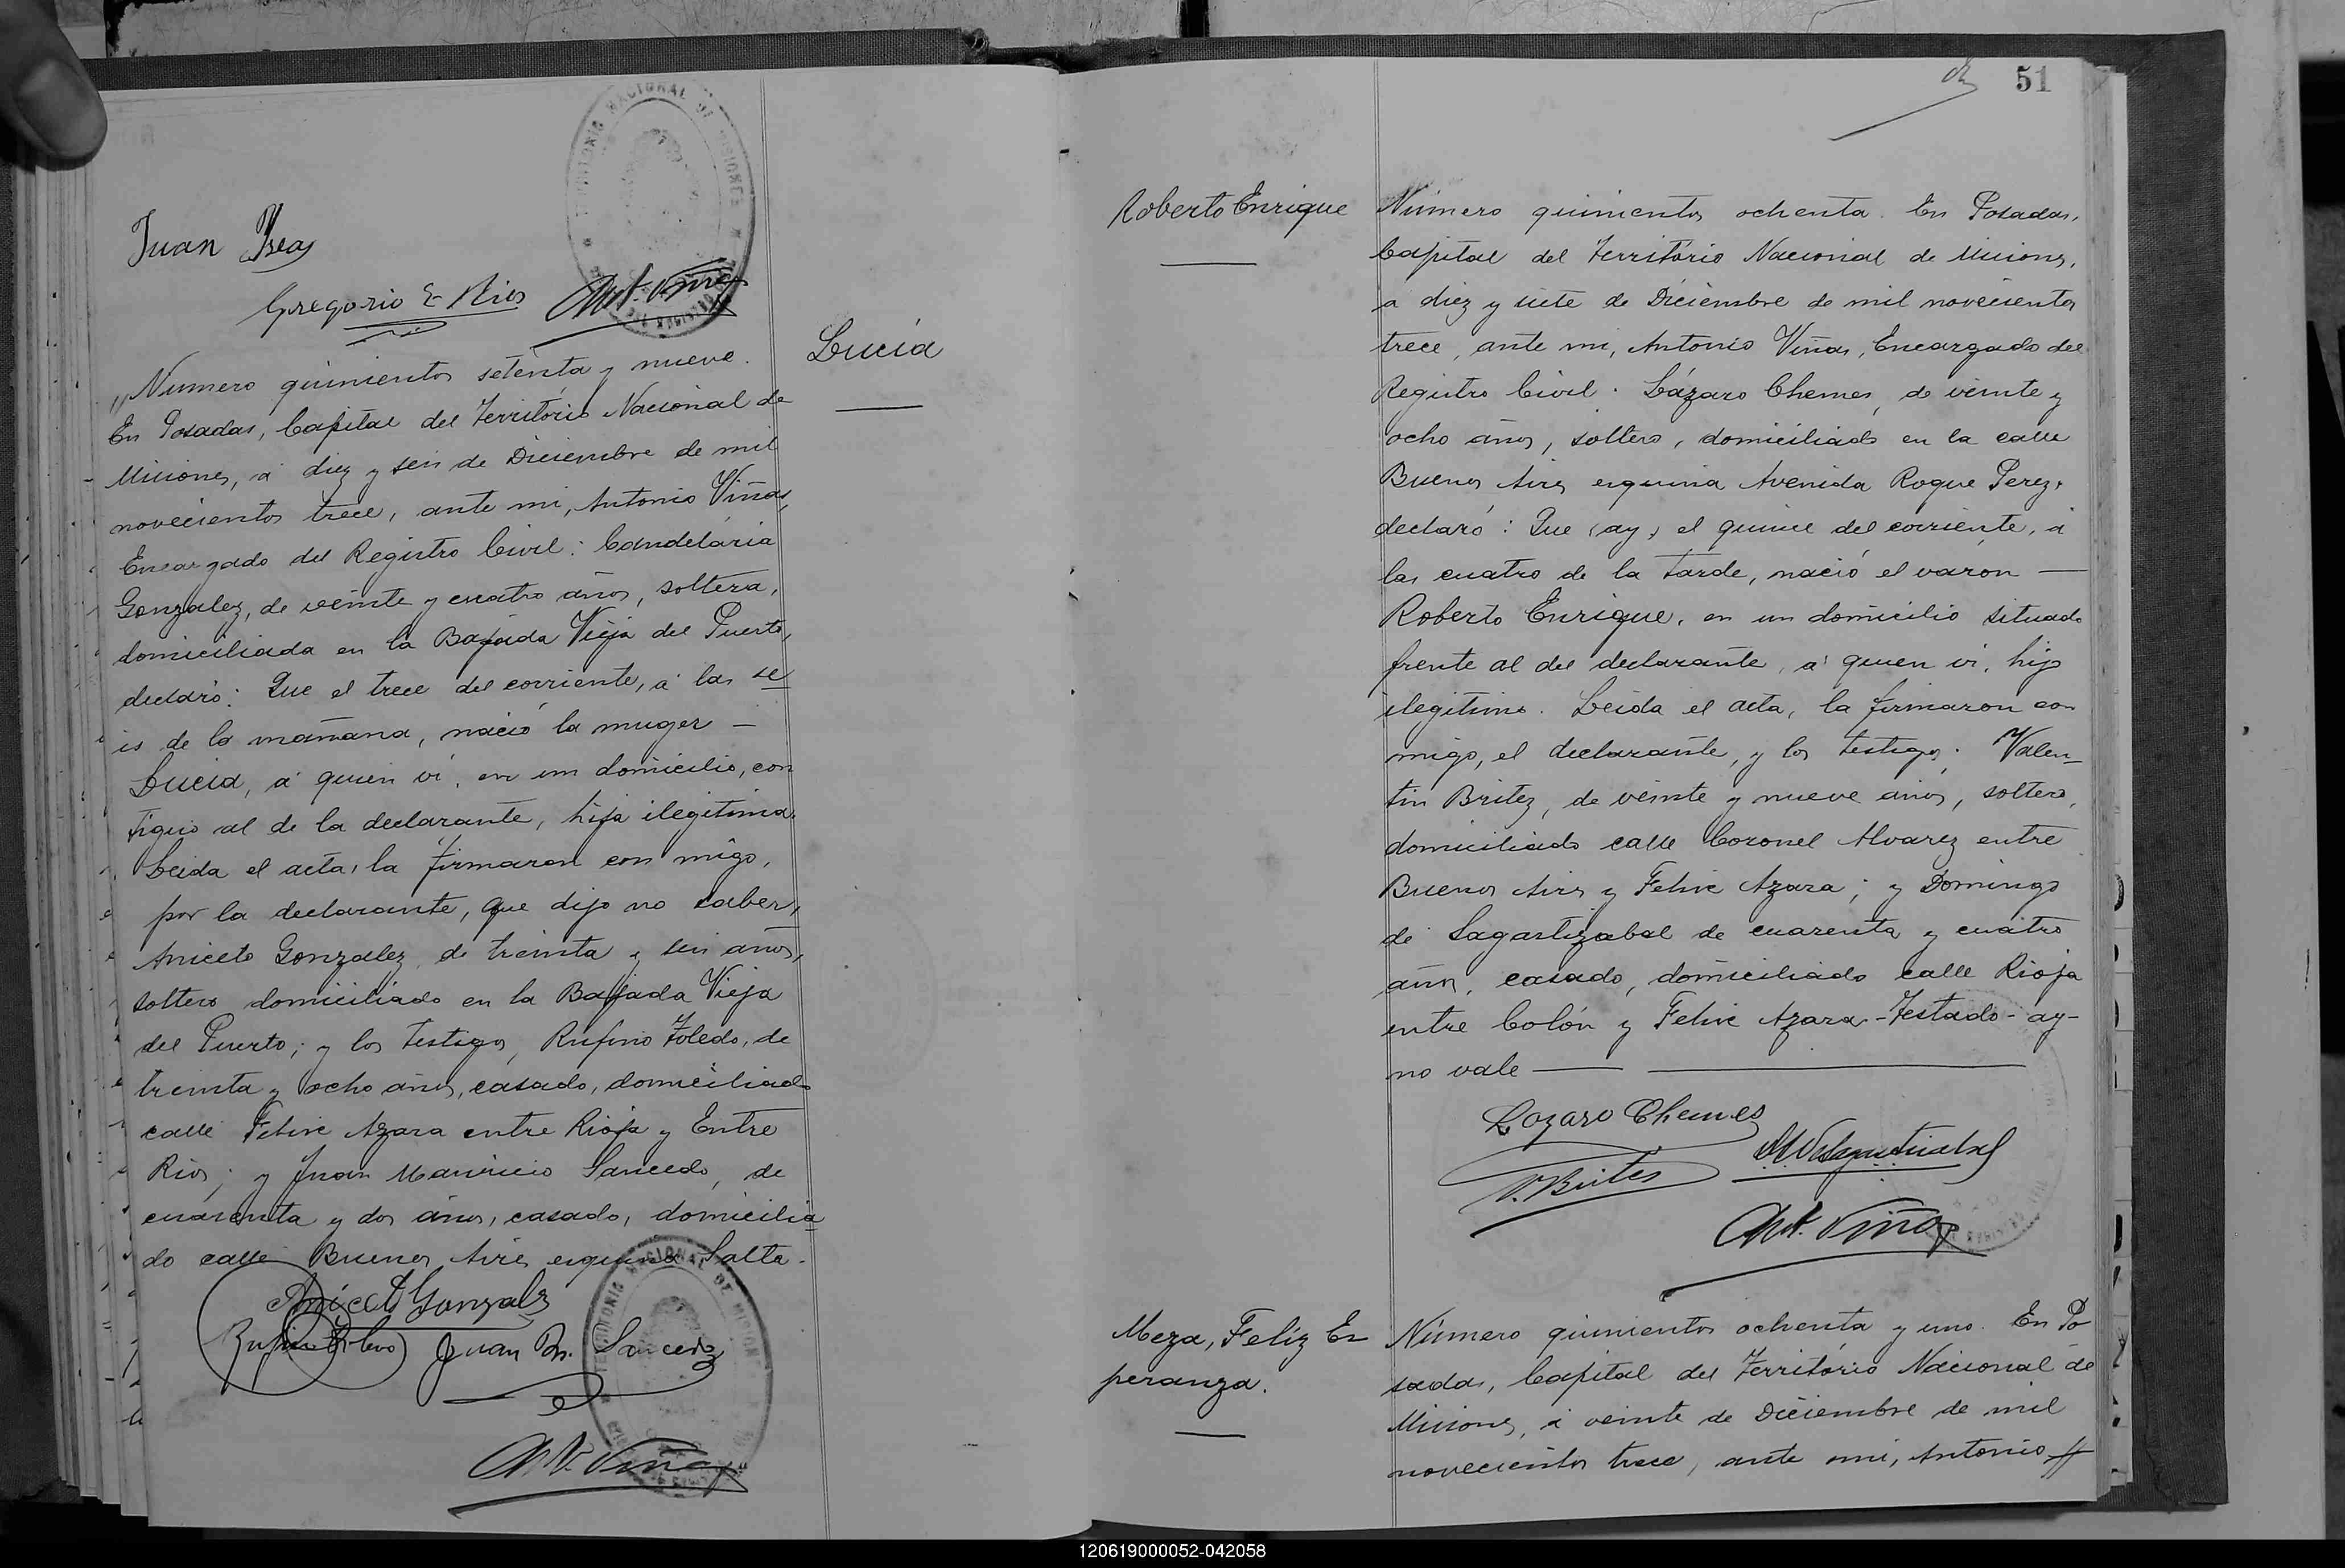 Juan
Gregorio E. Rios Ant. Viñas
TERRITORIO NACIONAL DE MISIONES
Número quinientos setenta y nueve.
Lucía
En Posadas, Capital del Territorio Nacional de
Misiones, á diez y seis de Diciembre de mil
novecientos trece, ante mi, Antonio Viñas,
Encargado del Registro Civil: Candelaria
Gonzalez, de veinte y cuatro años, soltera,
domiciliada en la Bajada Vieja del Puerto,
declaró: Que el trece del corriente, á las se
is de la mañana, nació la muger —
Lucía, á quien ví, en un domicilio, con
tiguo al de la declarante, hija ilegitima.
Leida el acta, la firmaron con migo,
por la declarante, que dijo no saber,
Aniceto Gonzalez, de treinta y seis años,
soltero domiciliado en la Bajada Vieja
del Puerto; y los testigos, Rufino Toledo, de
treinta y ocho años, casado, domiciliado
calle Felix Azara entre Rioja y Entre
Rios; y Juan Mauricio Saucedo, de
cuarenta y dos años, casado, domicilia
do calle Buenos Aires esquina Salta.
Anicet Gonzalz
Juan M. Saucedo
Ant. Viñas
TERRITORIO NACIONAL DE MISIONES
51
Roberto Enrique
Número quinientos ochenta. En Posadas,
Capital del Territorio Nacional de Misiones,
a diez y siete de Diciembre de mil novecientos
trece, ante mi, Antonio Viñas, Encargado del
Registro Civil: Lázaro Chemes, de veinte y
ocho años, soltero, domiciliado en la calle
Buenos Aires esquina Avenida Roque Perez,
declaró: Que (ay) el quince del corriente, á
las cuatro de la tarde, nació el varón —
Roberto Enrique, en un domicilio situado
frente al del declarante, a quien ví, hijo
ilegitimo. Leida el acta, la firmaron con
migo, el declarante, y los testigos: Valen
tin Britez, de veinte y nueve años, soltero,
domiciliado calle Coronel Alvarez entre
Buenos Aires y Felix Azara; y Domingo
de Sagastizabal de cuarenta y cuatro
años, casado, domiciliado calle Rioja
entre Colón y Felix Azara - Testado - ay -
no vale
Lozaro Chemes
V. Brites
Ant. Viñas
Meza, Feliz Es
peranza.
Número quinientos ochenta y uno. En Po
sadas, Capital del Territorio Nacional de
Misiones, á veinte de Diciembre de mil
novecientos trece, ante mi, Antonio
120619000052-042058